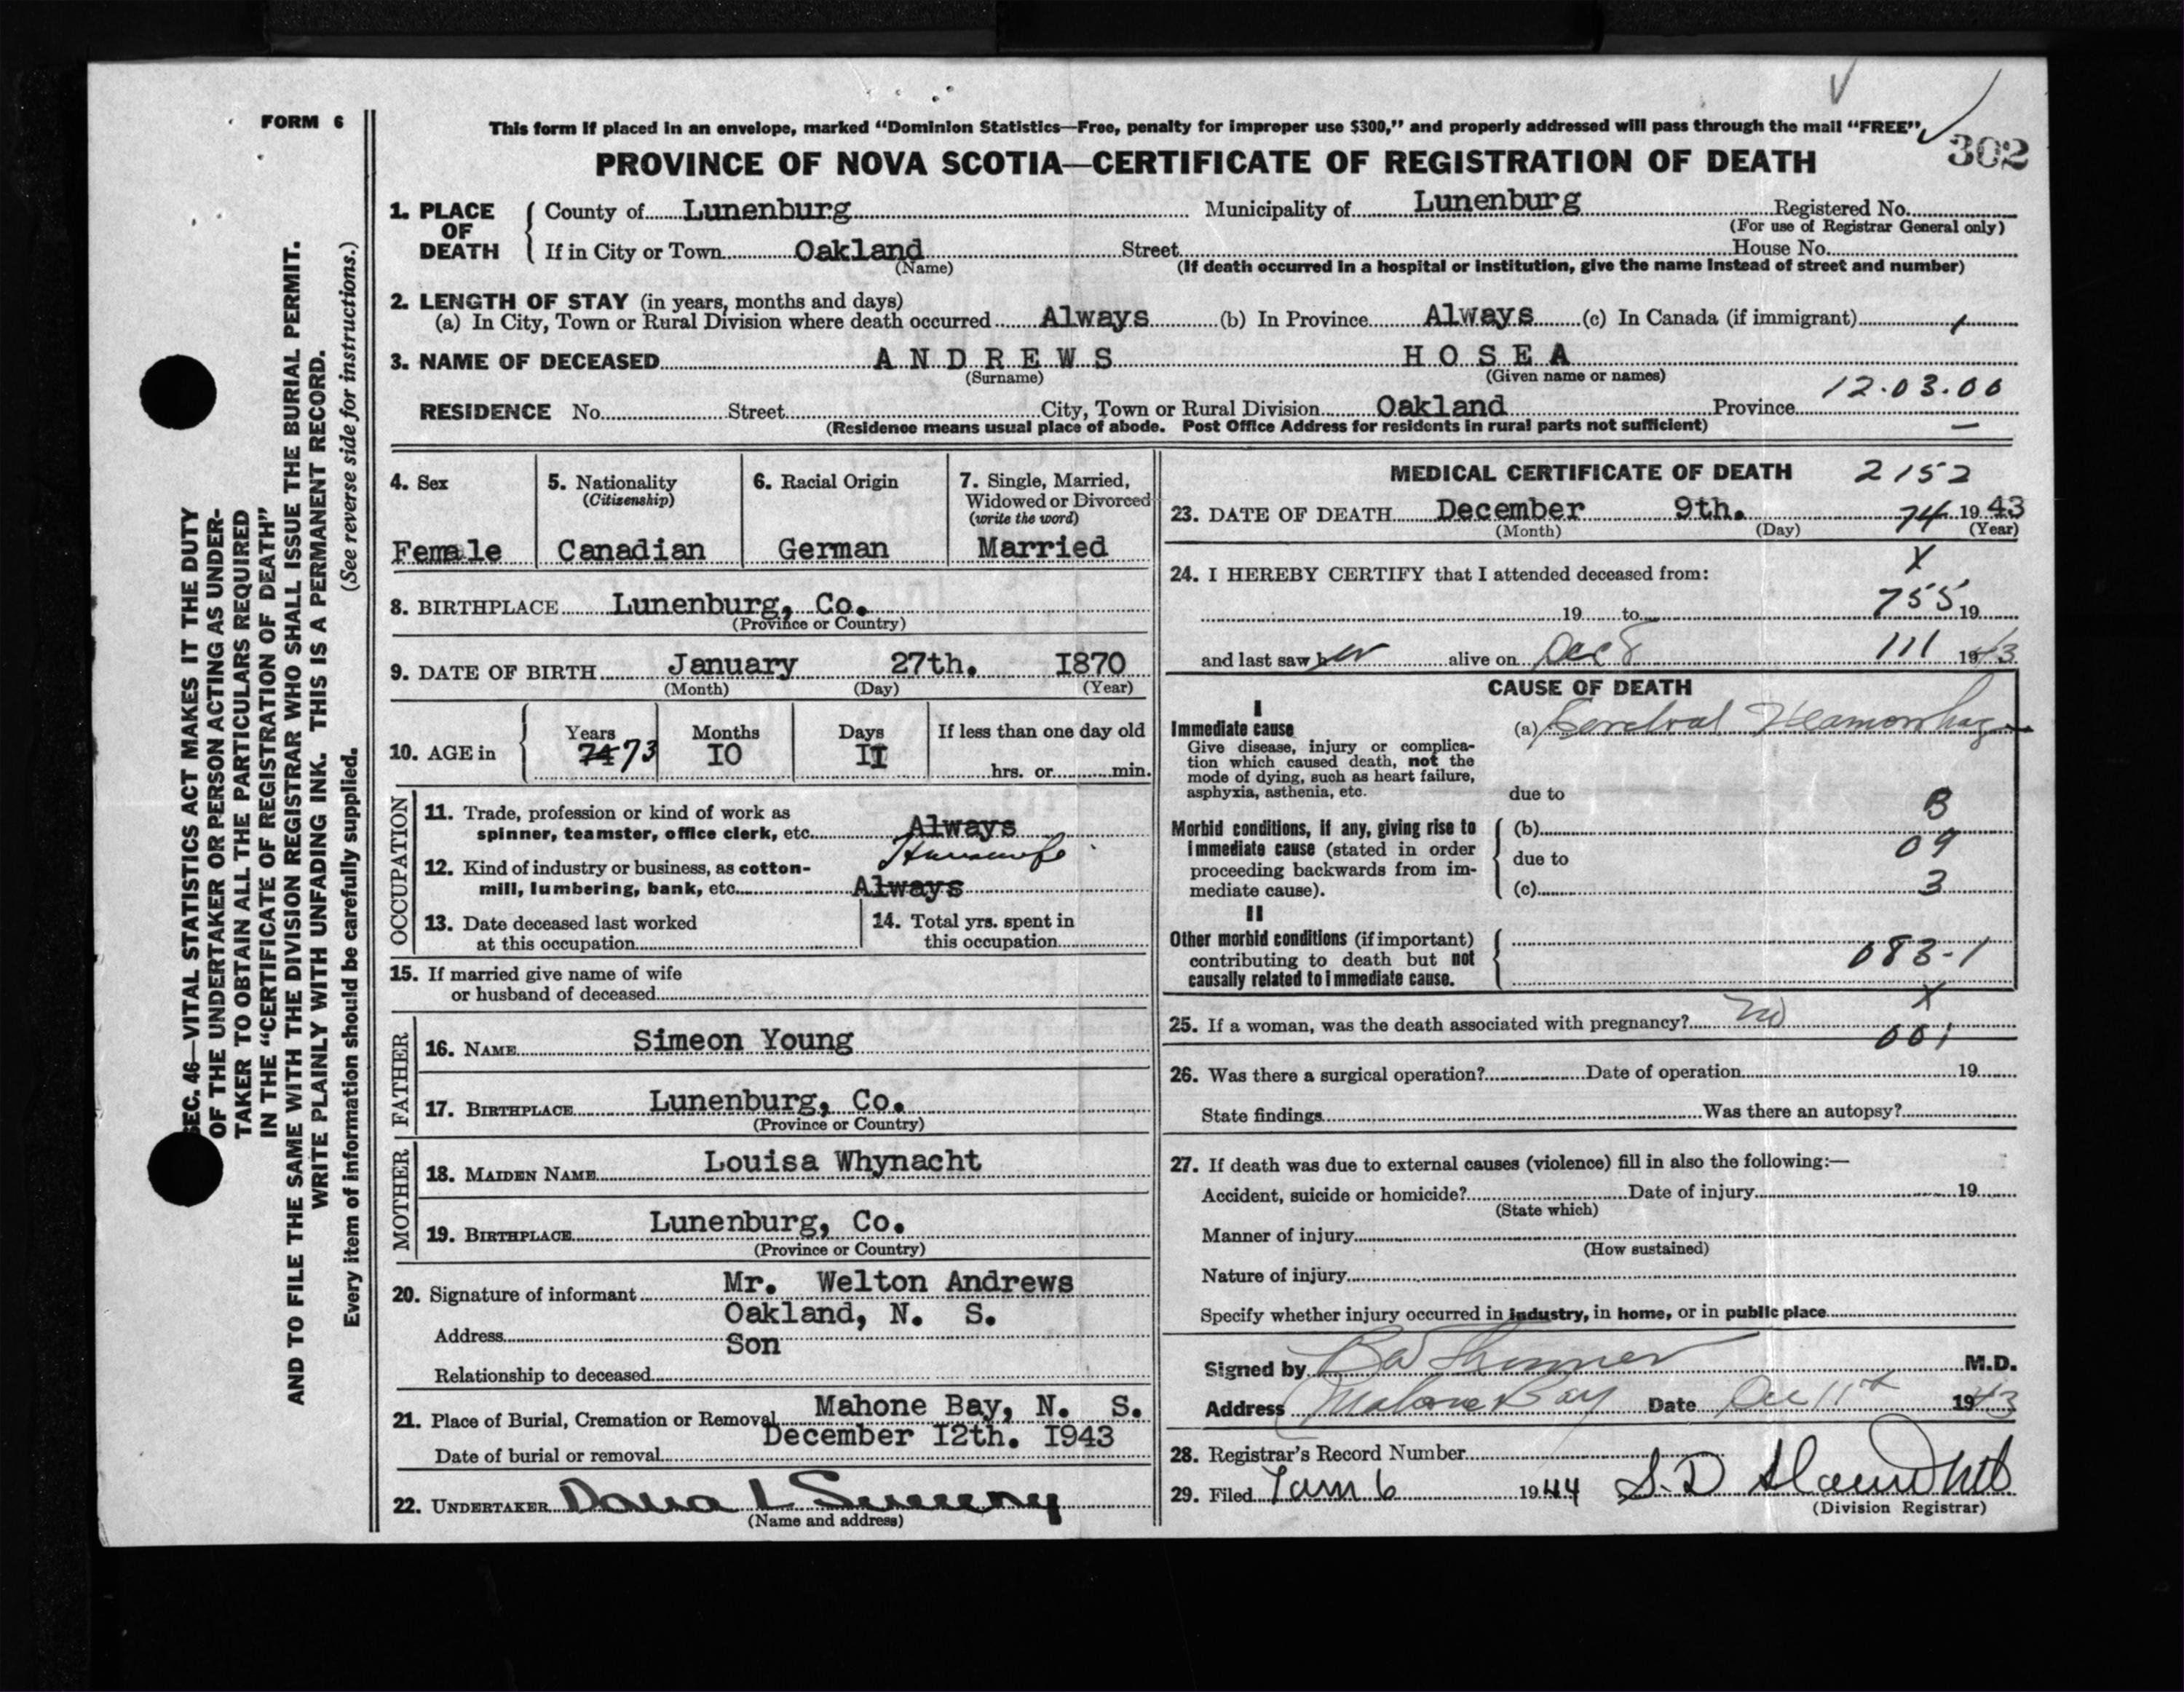 FORM 6
This form if placed in an envelope, marked “Dominion Statistics—Free, penalty for improper use $300,” and properly addressed will pass through the mail “FREE”.
302
PROVINCE OF NOVA SCOTIA—CERTIFICATE OF REGISTRATION OF DEATH
SEC. 46—VITAL STATISTICS ACT MAKES IT THE DUTY
OF THE UNDERTAKER OR PERSON ACTING AS UNDER-
TAKER TO OBTAIN ALL THE PARTICULARS REQUIRED
IN THE “CERTIFICATE OF REGISTRATION OF DEATH”
AND TO FILE THE SAME WITH THE DIVISION REGISTRAR WHO SHALL ISSUE THE BURIAL PERMIT.
WRITE PLAINLY WITH UNFADING INK. THIS IS A PERMANENT RECORD.
Every item of information should be carefully supplied. (See reverse side for instructions.)
1. PLACE OF DEATH
County of Lunenburg Municipality of Lunenburg Registered No.
(For use of Registrar General only)
If in City or Town Oakland Street House No.
(Name) (If death occurred in a hospital or institution, give the name instead of street and number)
2. LENGTH OF STAY (in years, months and days)
(a) In City, Town or Rural Division where death occurred Always (b) In Province Always (c) In Canada (if immigrant) /
3. NAME OF DECEASED A N D R E W S H O S E A
(Surname) (Given name or names)
12.03.00
RESIDENCE No. Street City, Town or Rural Division Oakland Province —
(Residence means usual place of abode. Post Office Address for residents in rural parts not sufficient)
4. Sex
Female
5. Nationality
(Citizenship)
Canadian
6. Racial Origin
German
7. Single, Married,
Widowed or Divorced
(write the word)
Married
8. BIRTHPLACE Lunenburg, Co.
(Province or Country)
9. DATE OF BIRTH January 27th. I870
(Month) (Day) (Year)
10. AGE in
Years Months Days If less than one day old
74 73 IO II hrs. or min.
OCCUPATION
11. Trade, profession or kind of work as
spinner, teamster, office clerk, etc. Always
Housewife
12. Kind of industry or business, as cotton-
mill, lumbering, bank, etc. Always
13. Date deceased last worked
at this occupation
14. Total yrs. spent in
this occupation
15. If married give name of wife
or husband of deceased
FATHER
16. NAME Simeon Young
17. BIRTHPLACE Lunenburg, Co.
(Province or Country)
MOTHER
18. MAIDEN NAME Louisa Whynacht
19. BIRTHPLACE Lunenburg, Co.
(Province or Country)
20. Signature of informant Mr. Welton Andrews
Address Oakland, N. S.
Relationship to deceased Son
21. Place of Burial, Cremation or Removal Mahone Bay, N. S.
Date of burial or removal December I2th. I943
22. UNDERTAKER Dana L Sweeny
(Name and address)
MEDICAL CERTIFICATE OF DEATH 2152
23. DATE OF DEATH December 9th. 74 19 43
(Month) (Day) (Year)
X
24. I HEREBY CERTIFY that I attended deceased from:
19 to 755 19
and last saw her alive on Dec 8 111 1943
CAUSE OF DEATH
I
Immediate cause
Give disease, injury or complica-
tion which caused death, not the
mode of dying, such as heart failure,
asphyxia, asthenia, etc.
(a) Cerebral Heamorrhage
due to
Morbid conditions, if any, giving rise to
immediate cause (stated in order
proceeding backwards from im-
mediate cause).
(b) B
due to 09
(c) 3
II
Other morbid conditions (if important)
contributing to death but not
causally related to immediate cause.
083-1
X
25. If a woman, was the death associated with pregnancy? No
001
26. Was there a surgical operation? Date of operation 19
State findings Was there an autopsy?
27. If death was due to external causes (violence) fill in also the following:—
Accident, suicide or homicide? Date of injury 19
(State which)
Manner of injury
(How sustained)
Nature of injury
Specify whether injury occurred in industry, in home, or in public place
Signed by M.D.
Address Mahone Bay Date Dec 11th 1943
28. Registrar’s Record Number
29. Filed Jan 6 1944 S. D
(Division Registrar)